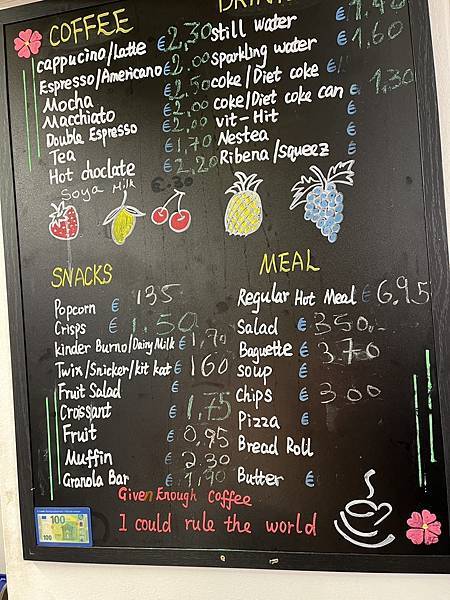 COFFEE
cappucino/Latte €2,30
Espresso/Americano €2,00
Mocha €2,50
Macchiato €2,00
Double Espresso €2,00
Tea €1,70
Hot choclate €2,20
Soya Milk €.30
still water €
sparkling water €1,60
coke/Diet coke €
coke/Diet coke can € 1,30
vit-Hit €
Nestea €
Ribena/squeez €
SNACKS
Popcorn € 135
Crisps € 1.50
kinder Burno/Dairy Milk €1,70
Twix/Snicker/kit kat € 160
Fruit Salad €
Croissant € 1,75
Fruit € 0,95
Muffin € 2,30
Granola Bar € 1,90
MEAL
Regular Hot Meal € 6.95
Salad € 350
Baguette € 370
soup €
chips € 300
Pizza €
Bread Roll
Butter €
Given Enough coffee
I could rule the world
100
100